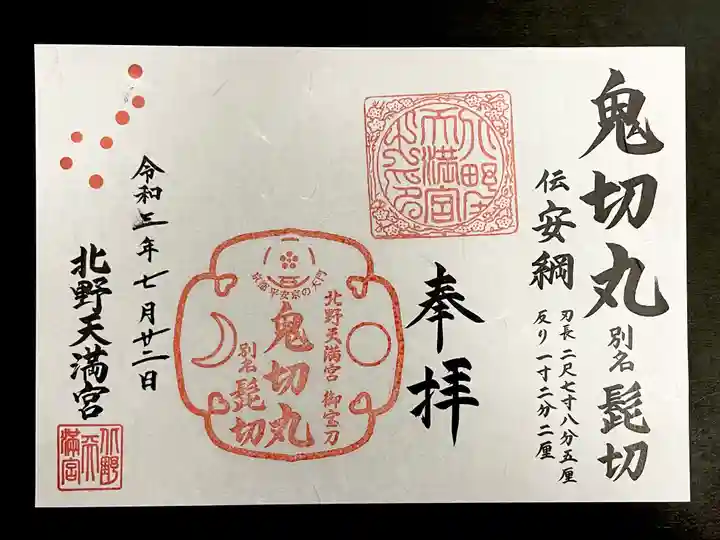 鬼切丸
別名 髭切
伝 安綱
刃長 二尺七寸八分五厘
反り 一寸二分二厘
奉拝
京都平安京の天門
北野天満宮 御宝刀
鬼切丸
別名 髭切
令和三年七月廿二日
北野天満宮
北野天満宮